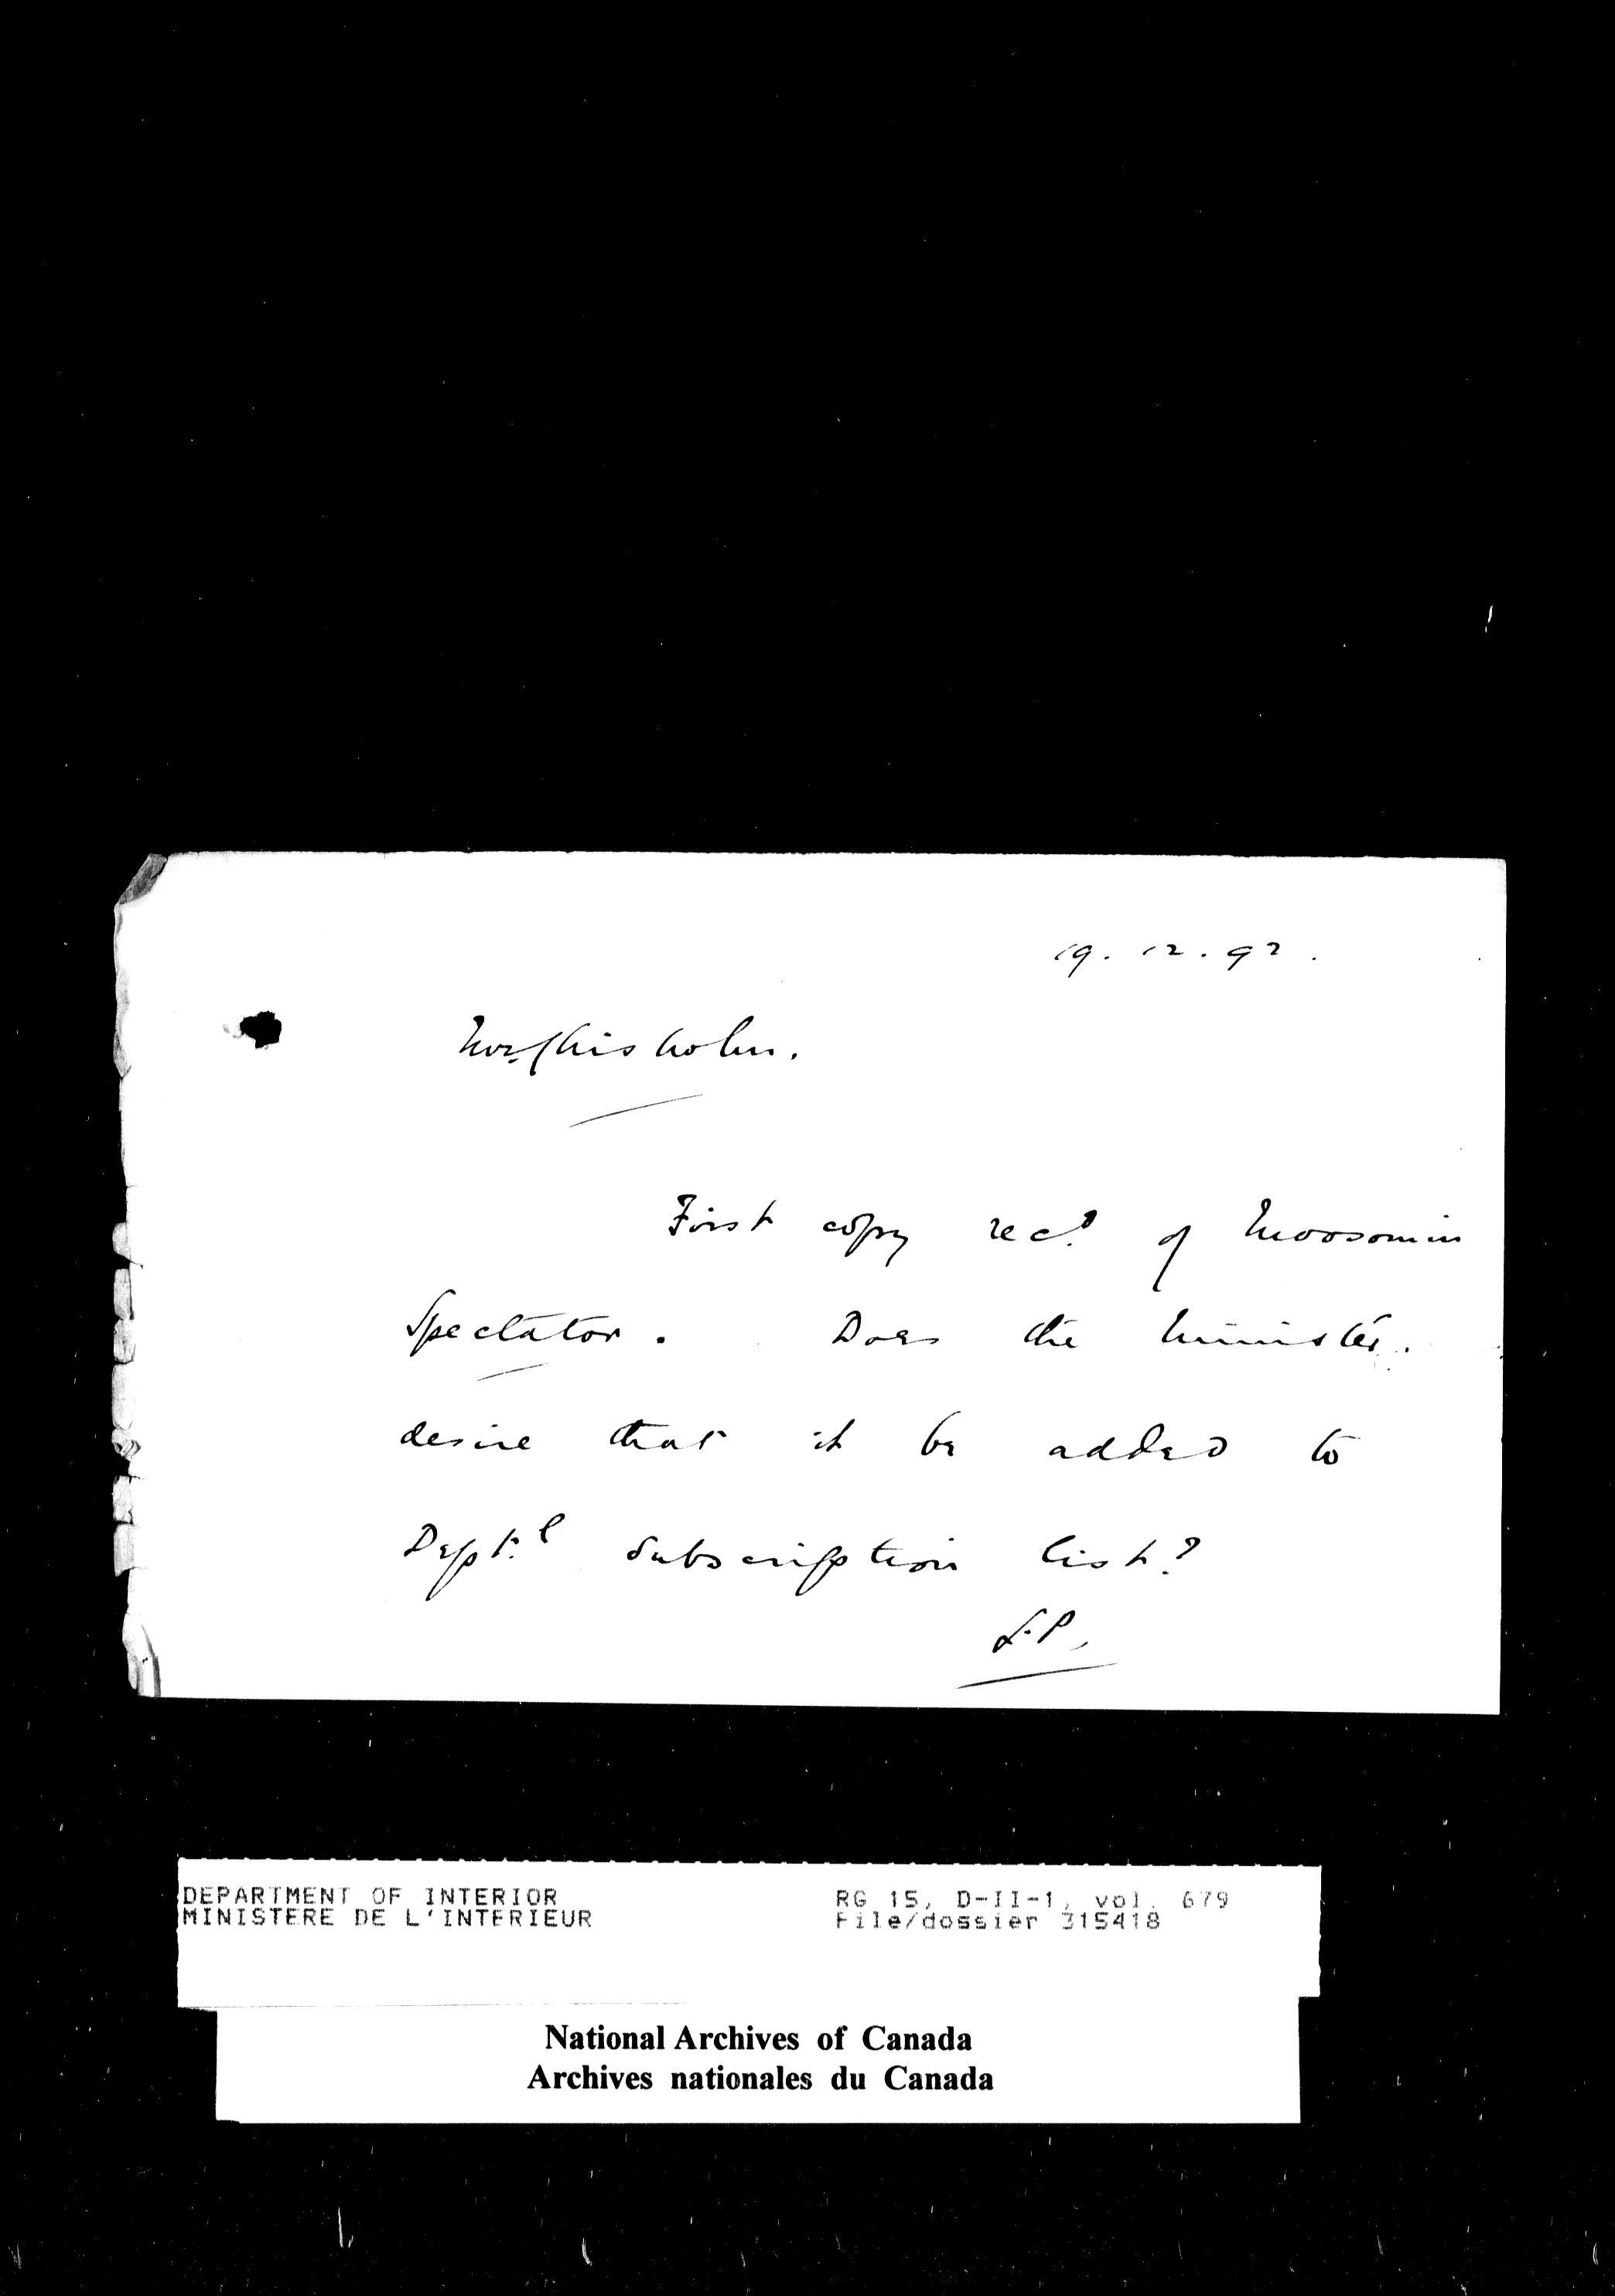 19. 12. 92.
Mr. Chisholm.
First copy rec.d of Moosomin
Spectator. Does the Minister.
desire that it be added to
Dept.l subscription list?
L.P.
DEPARTMENT OF INTERIOR
MINISTERE DE L'INTERIEUR
RG 15, D-II-1, vol. 679
File/dossier 315418
National Archives of Canada
Archives nationales du Canada